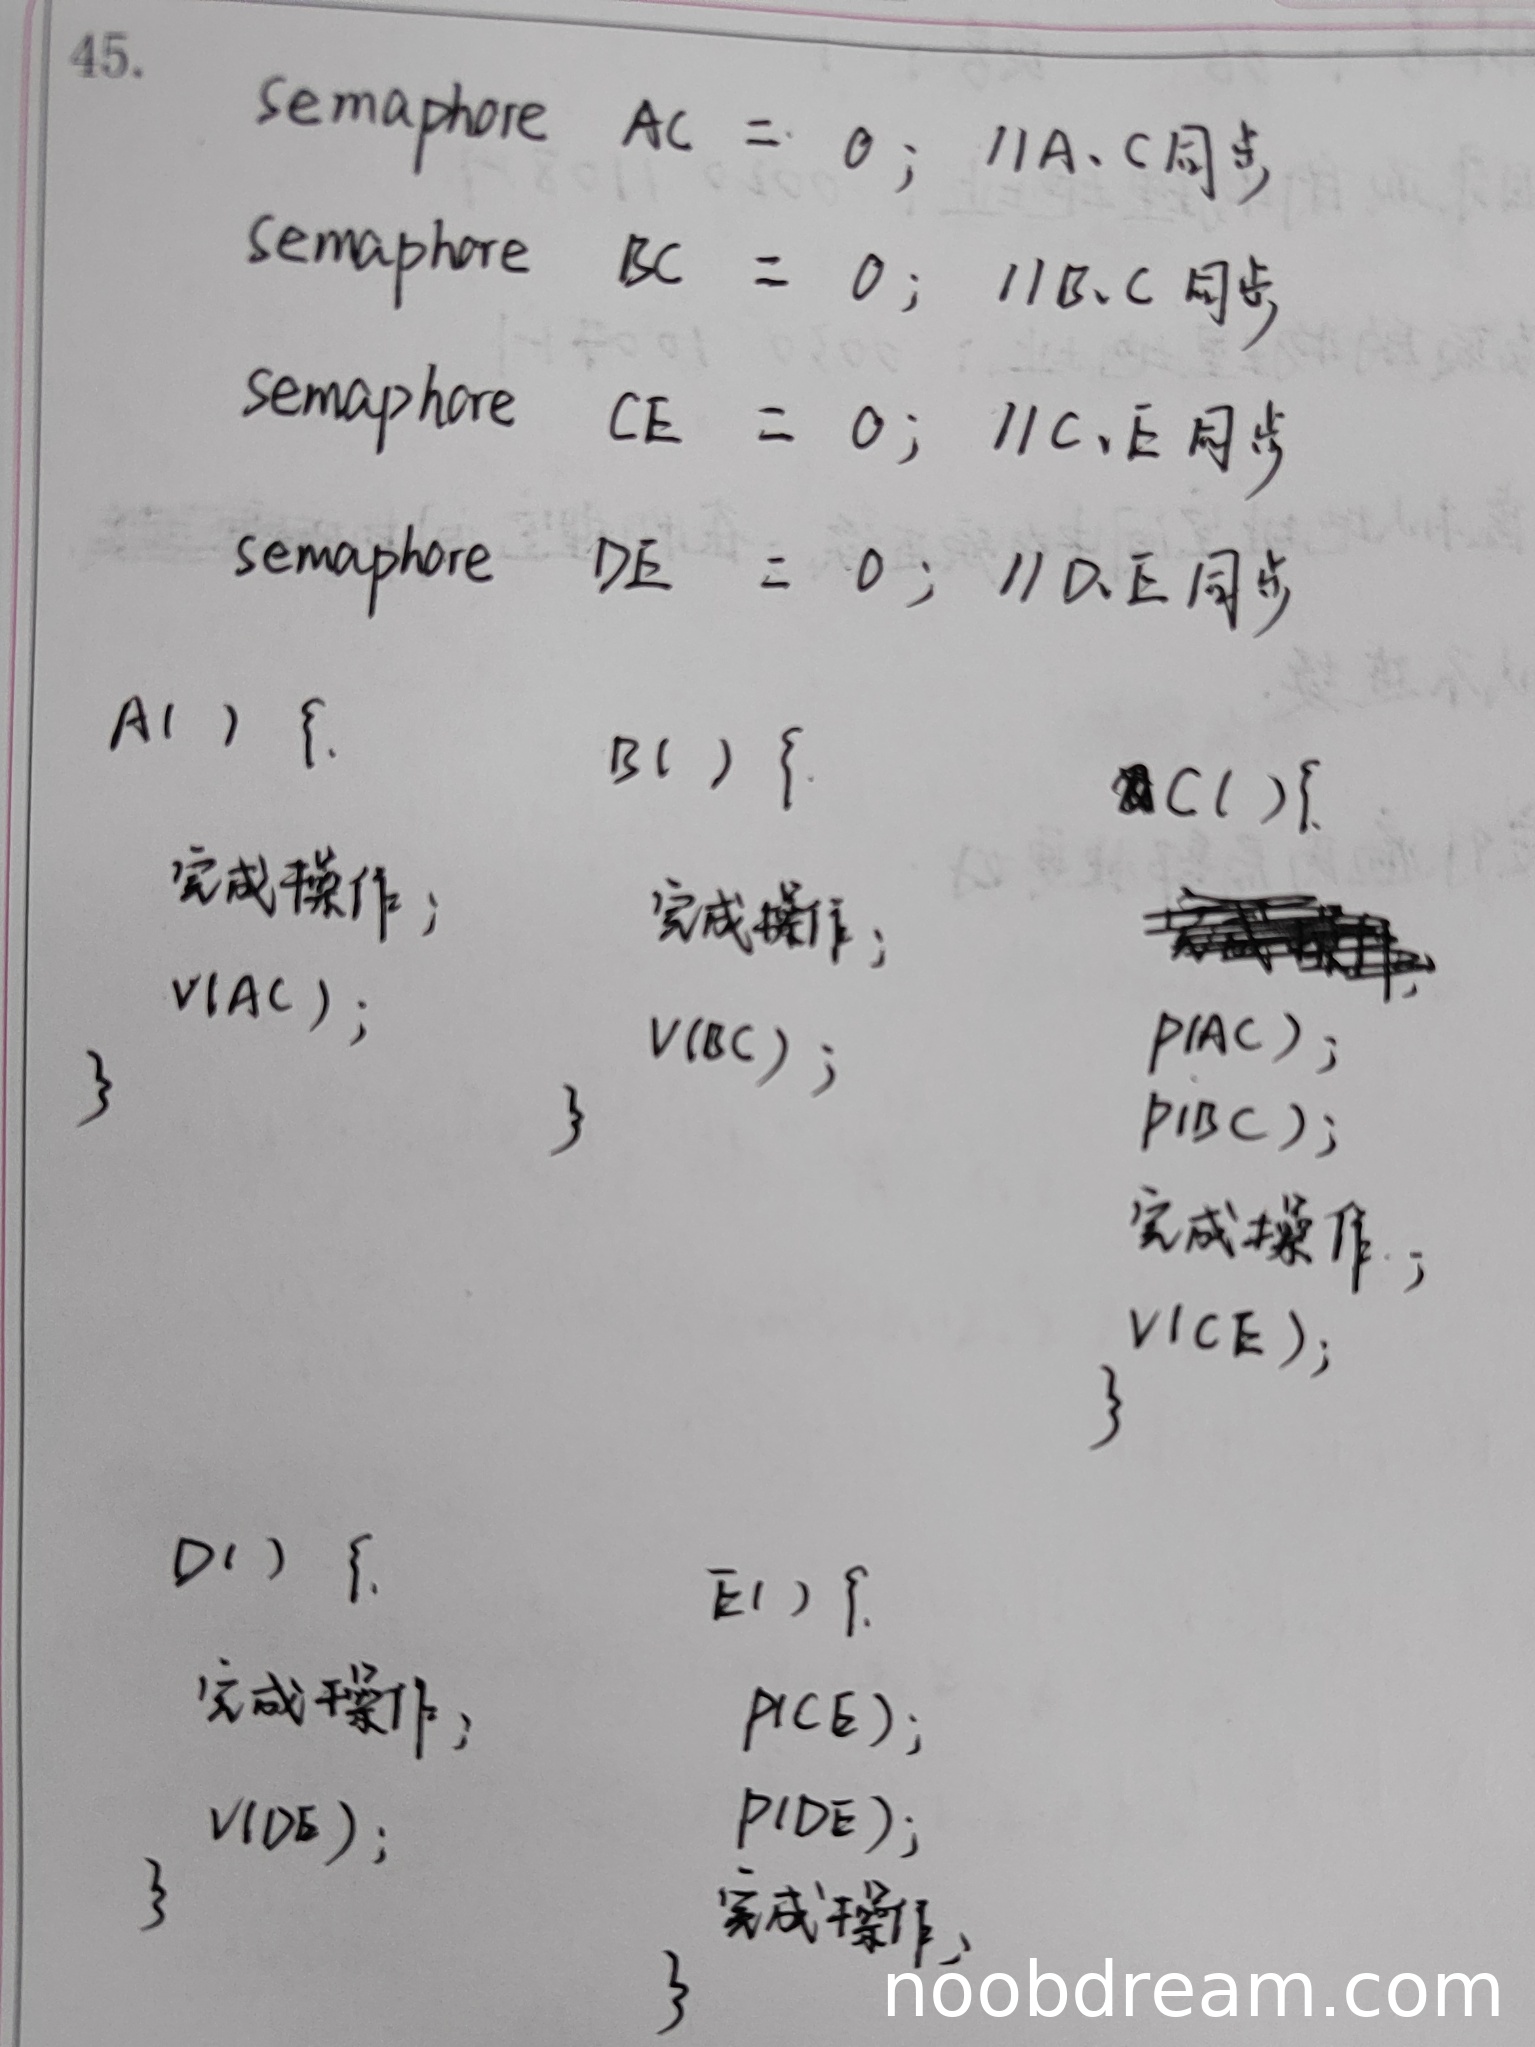 45.
semaphore AC = 0; //A、C同步
semaphore BC = 0; //B、C同步
semaphore CE = 0; //C、E同步
semaphore DE = 0; //D、E同步
A() {
完成操作;
V(AC);
}
B() {
完成操作;
V(BC);
}
C(){
P(AC);
P(BC);
完成操作;
V(CE);
}
D() {
完成操作;
V(DE);
}
E() {
P(CE);
P(DE);
完成操作;
}
noobdream.com